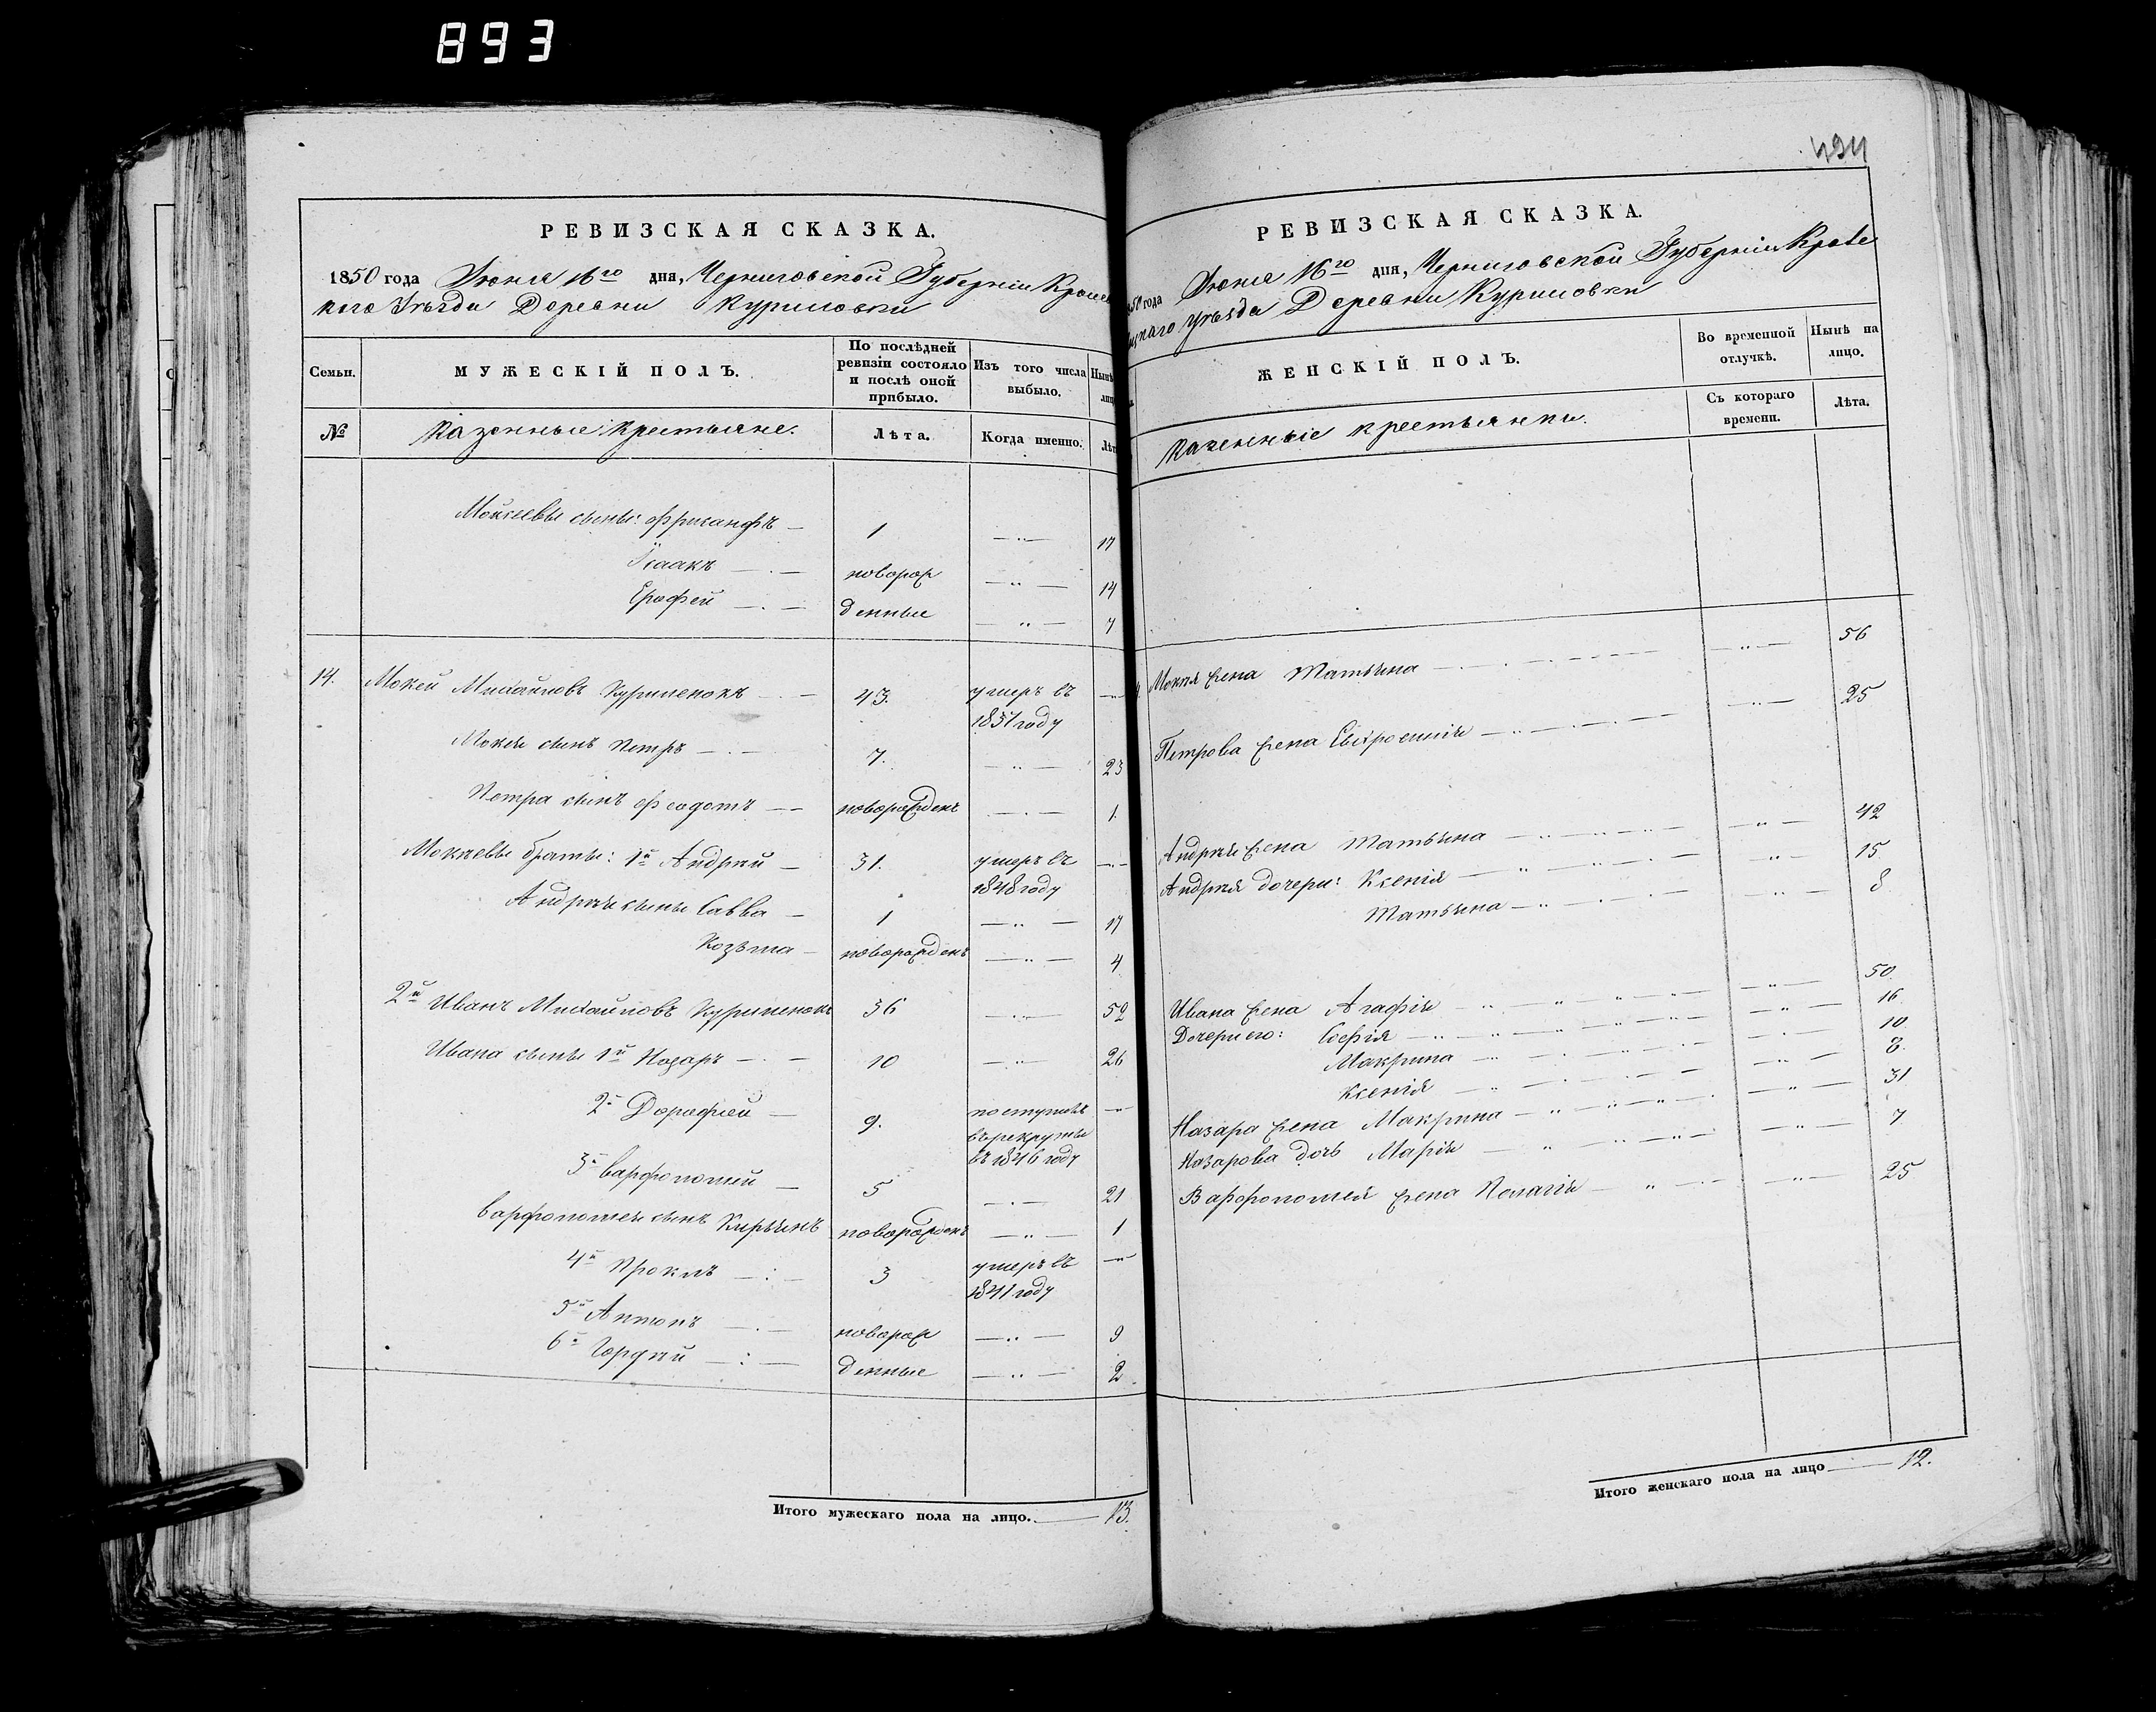 893
РЕВИЗСКАЯ СКАЗКА.
1850 года Июня 16го дня, Черниговской Губерніи Кролев
кого Уѣзда Деревни Куриловки
Семьи. МУЖЕСКІЙ ПОЛЪ. По послѣдней ревизіи состояло и послѣ оной прибыло. Изъ того числа выбыло. Нынѣ
№ Казенные крестьяне. Лѣта. Когда именно. Лѣт
Моисеевы сыны: 1 —"— 17
Ісаакъ — новорож —"— 14
Ерофей — денные —"— 7
14. Мокей Михайловъ Куриленокъ — 43. умеръ въ —"—
1851 году
Мокея сынъ Петръ — 7. —"— 23
Петра сынъ Феодотъ — новорожденъ —"— 1.
Мокѣевы братья: 1й Андрѣй — 31. умеръ въ —"—
1848 году
Андрѣя сыны Савва — 1 —"— 17
Козьма — новорожденъ —"— 4
2й Иванъ Михайловъ Куриленокъ 36 —"— 52
Ивана сыны 1й Назаръ — 10 —"— 26
2й Дорофей — 9. поступилъ —"—
въ рекруты
въ 1846 году
3й Варфоломей — 5 —"— 21
Варфоломея сынъ новорожденъ —"— 1
4й Проклъ — 3 умеръ въ —"—
1841 году
5й Антонъ — новорож —"— 9
6й Гордѣй — денные —"— 2.
Итого мужескаго пола на лицо. — 13.
494
РЕВИЗСКАЯ СКАЗКА.
850 года Июня 16го дня, Черниговской Губерніи Кролe
ецкаго уѣзда Деревни Куриловки
ЖЕНСКІЙ ПОЛЪ. Во временной отлучкѣ. Нынѣ на лицо.
Казенные крестьянки. Съ котораго времени. Лѣта.
Мокѣя жена Татьяна —"— 56
Петрова жена Евфросинія —"— 25
Андрѣя жена Татьяна —"— 42
Андрѣя дочери: Ксенія —"— 15
Татьяна —"— 8
Ивана жена Агафія —"— 50
Дочери его: Софія —"— 16
Макрина —"— 10
Ксенія —"— 8.
Назара жена Макрина —"— 31
Назарова дочь Марія —"— 7
Варфоломея жена Пелагія —"— 25
Итого женскаго пола на лицо — 12.